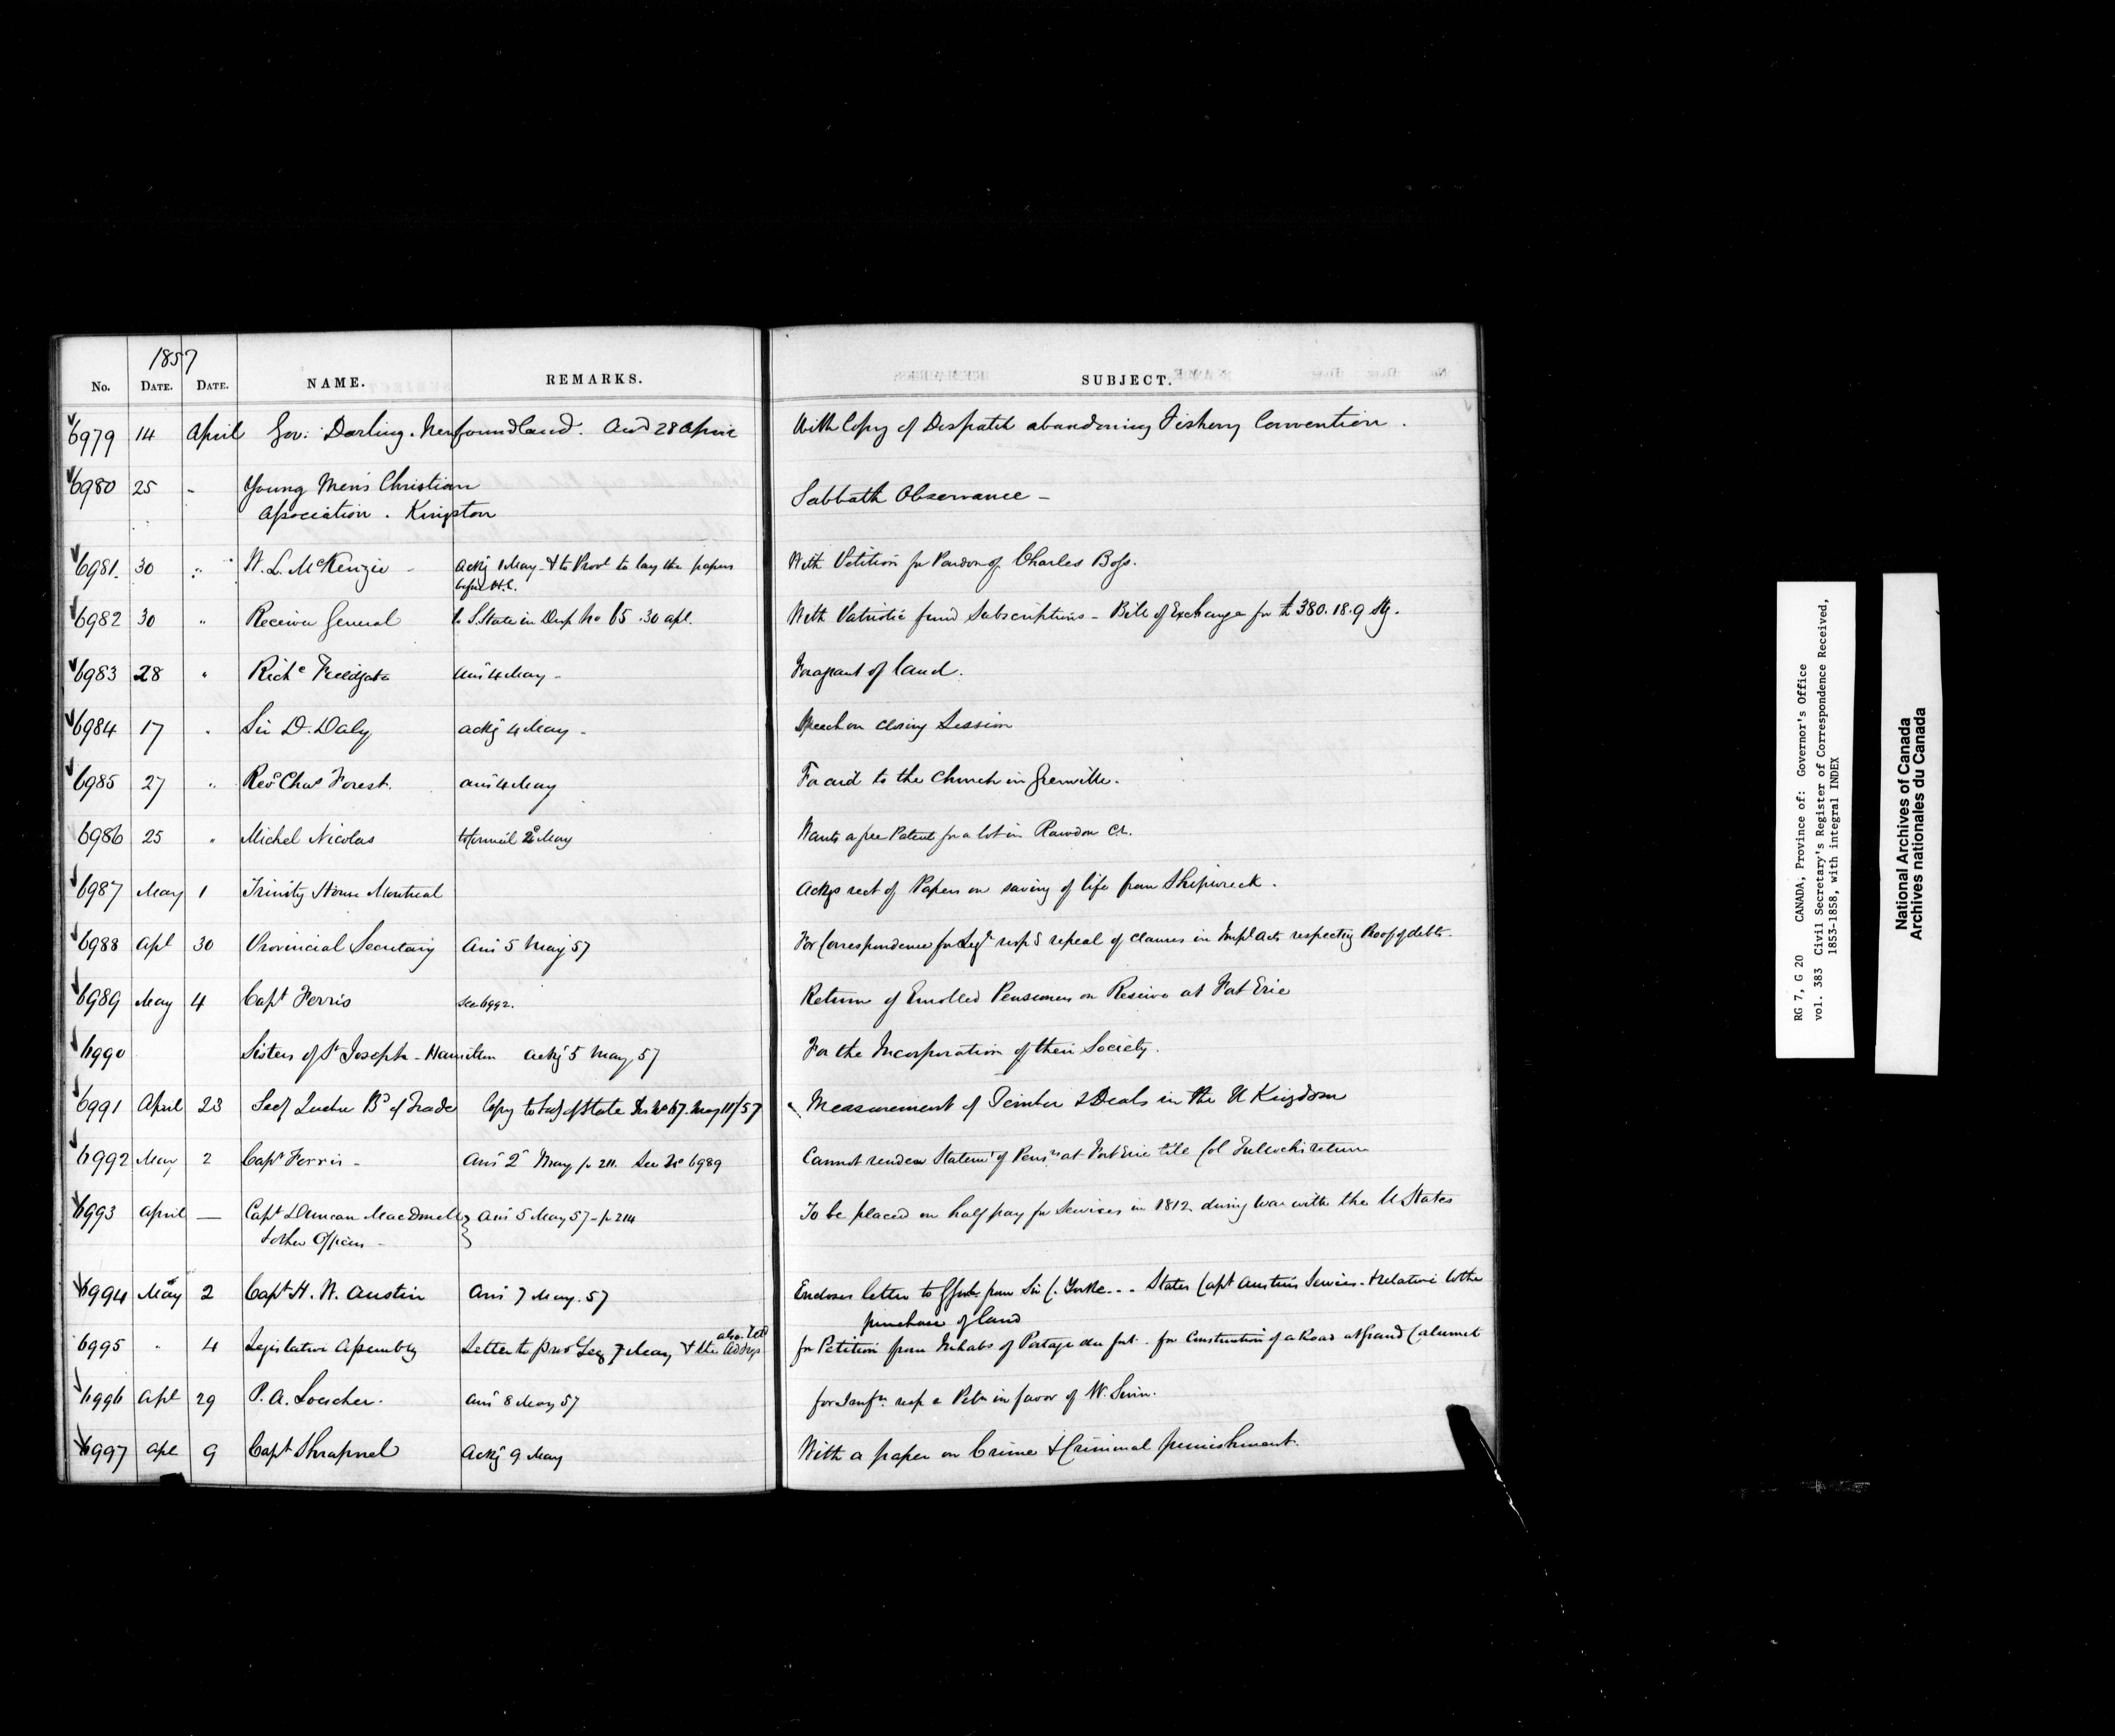 1857
No. DATE. DATE. NAME. REMARKS. SUBJECT.
6979 14 April Gov: Darling. Newfoundland. Ansd 28 April With Copy of Despatch abandoning Fishery Convention.
6980 25 " Young Men's Christian Sabbath Observance –
Association. Kingston
6981. 30 " W. L. McKenzie – Ackg 1 May & to Prov to lay the papers With Petition for Pardon of Charles Boss.
before H.E.
6982 30 " Receiver General to S. State in Desp No 65. 30 apl. With Patriotic fund Subscriptions – Bill of Exchange for £380.18.9 Stg.
6983 28 " Richd Ansd 4 May – For a grant of land.
6984 17 " Sir D. Daly ackg 4 May – Speech on closing Session
6985 27 " Revd Chas Forest. ansd 4 May For aid to the Church in Grenville.
6986 25 " Michel Nicolas to Council May Wants a free Patent for a lot in Rawdon C.E.
6987 May 1 Trinity House Montreal Ackgs rect of Papers on saving of life from Shipwreck.
6988 Apl 30 Provincial Secretary Ansd 5 May 57 For Correspondence for respg repeal of clauses in Impl Acts respecting Proof of debts.
6989 May 4 Capt Ferris See 6992. Return of Enrolled Pensioners on Reserve at Fort Erie
6990 Sisters of St Joseph – Hamilton ackg 5 May 57 For the Incorporation of their Society.
6991 April 23 Secy Quebec Bd of Trade Copy to Secy of State Des No 67. May 11/57 Measurement of Timber & Deals in the U Kingdom
6992 May 2 Capt Ferris – Ansd 2d May p 211. See No 6989 Cannot render Statemt of Pensrs at Fort Erie till Col Tulloch's return
6993 April — Capt Duncan MacDonell } Ansd 5 May 57 – p 214 To be placed on half pay for Services in 1812 during War with the U States
& other Officers –
6994 May 2 Capt H. W. Austin Ansd 7 May. 57 Encloses letter to from Sir C. Yorke... States Capt Austin's Services. & relative to the
purchase of land
6995 " 4 Legislative Assembly Letter to Prov Secy 7 May & the Address for Petition from Inhabs of Portage du fort. for Construction of a Road at Grand Calumet
6996 Apl 29 P. A. Loescher. Ansd 8 May 57 for Infn. resp a Petn in favor of W.
6997 Apl 9 Capt Shrapnel Ackg 9 May With a paper on Crime & Criminal punishment.
RG 7, G 20 CANADA, Province of: Governor's Office
vol. 383 Civil Secretary's Register of Correspondence Received,
1853-1858, with integral INDEX
National Archives of Canada
Archives nationales du Canada